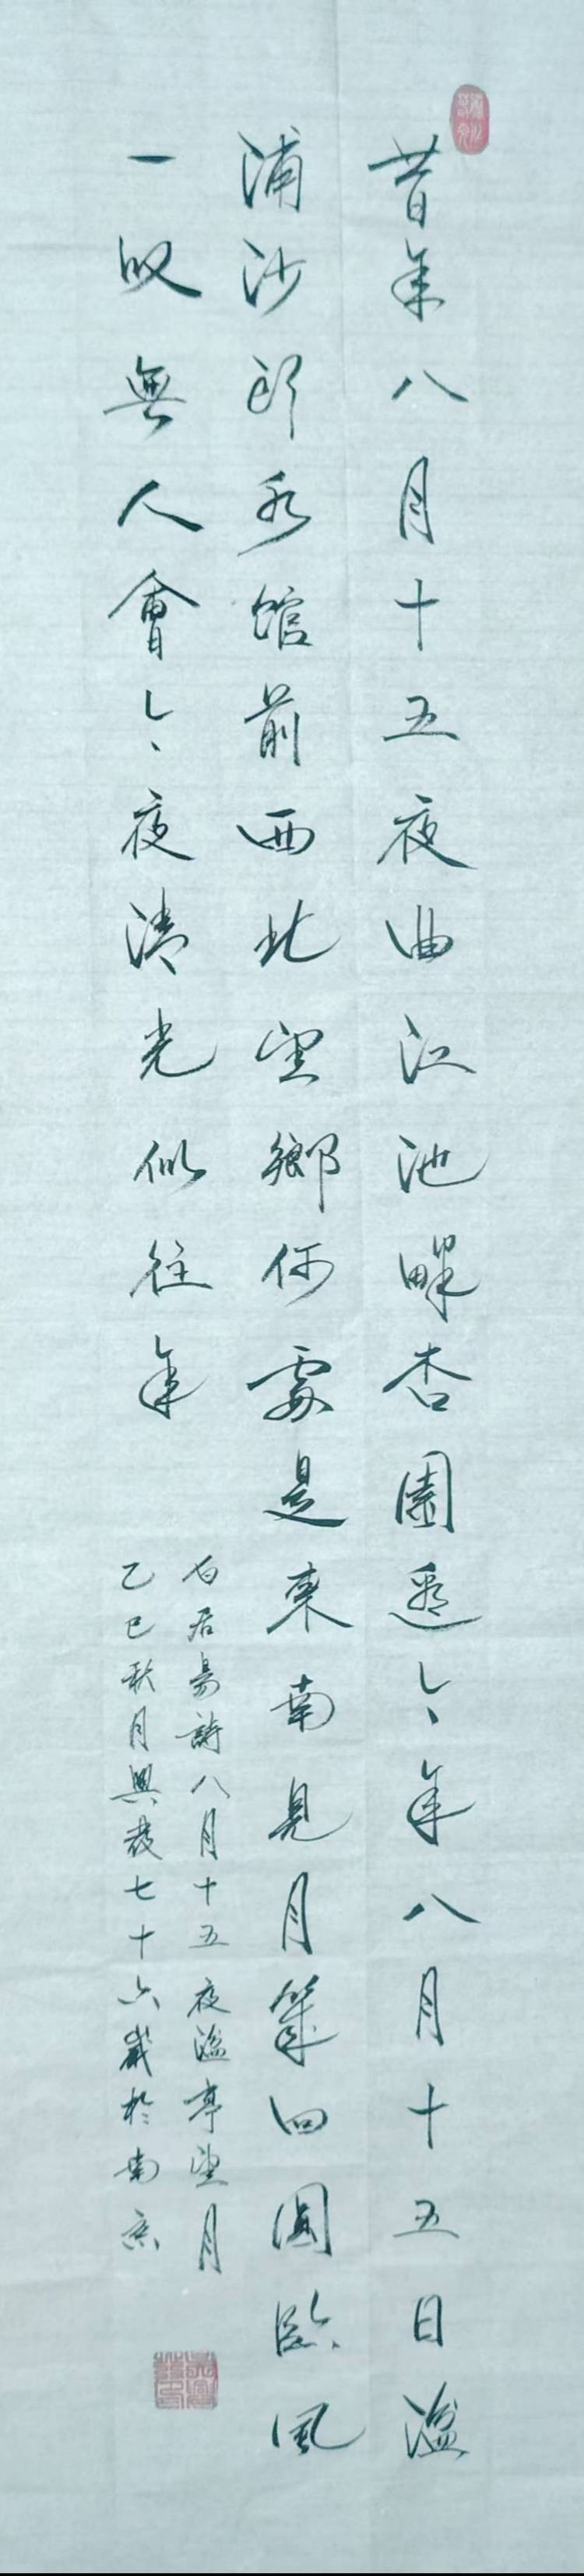 昔年八月十五夜曲江池畔杏園邊今年八月十五日湓
浦沙頭水館前西北望鄉何處是東南見月幾回圓臨風
一叹無人會今夜清光似往年
白居易詩八月十五夜湓亭望月
乙巳秋月興發七十六歲於南京